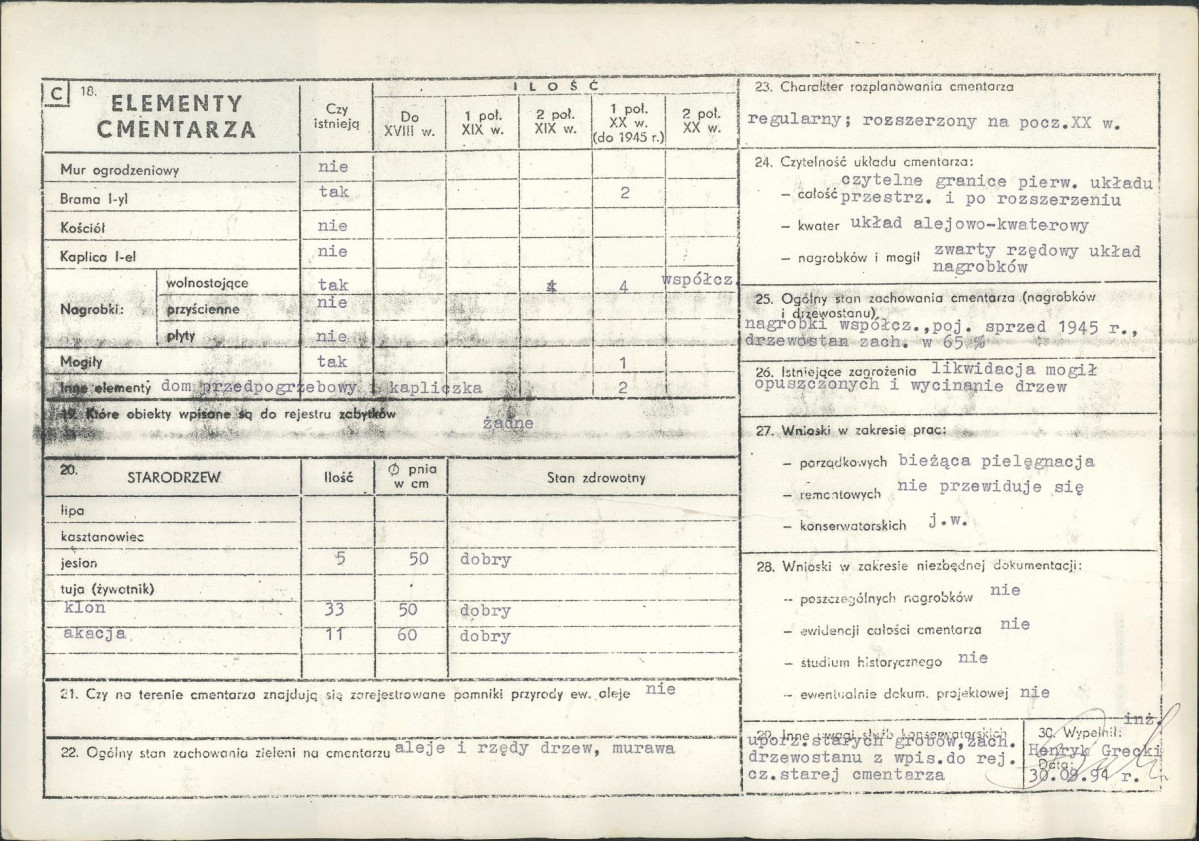 C 18. ELEMENTY CMENTARZA
Czy istnieją
ILOŚĆ
Do XVIII w.
1 poł. XIX w.
2 poł. XIX w.
1 poł. XX w. (do 1945 r.)
2 poł. XX w.
Mur ogrodzeniowy nie
Brama I-yl tak 2
Kościół nie
Kaplica I-el nie
Nagrobki:
wolnostojące tak 4 współcz.
przyścienne nie
płyty nie
Mogiły tak 1
Inne elementy dom przedpogrzebowy i kapliczka 2
19. Które obiekty wpisane są do rejestru zabytków
żadne
20. STARODRZEW Ilość Ø pnia w cm Stan zdrowotny
lipa
kasztanowiec
jesion 5 50 dobry
tuja (żywotnik)
klon 33 50 dobry
akacja 11 60 dobry
21. Czy na terenie cmentarza znajdują się zarejestrowane pomniki przyrody ew. aleje nie
22. Ogólny stan zachowania zieleni na cmentarzu aleje i rzędy drzew, murawa
23. Charakter rozplanowania cmentarza
regularny; rozszerzony na pocz.XX w.
24. Czytelność układu cmentarza:
– całość czytelne granice pierw. układu
przestrz. i po rozszerzeniu
– kwater układ alejowo-kwaterowy
– nagrobków i mogił zwarty rzędowy układ
nagrobków
25. Ogólny stan zachowania cmentarza (nagrobków
i drzewostanu)
nagrobki współcz.,poj. sprzed 1945 r.,
drzewostan zach. w 65 %
26. Istniejące zagrożenia likwidacja mogił
opuszczonych i wycinanie drzew
27. Wnioski w zakresie prac:
– porządkowych bieżąca pielęgnacja
– remontowych nie przewiduje się
– konserwatorskich j.w.
28. Wnioski w zakresie niezbędnej dokumentacji:
– poszczególnych nagrobków nie
– ewidencji całości cmentarza nie
– studium historycznego nie
– ewentualnie dokum. projektowej nie
29. Inne uwagi służb konserwatorskich
uporz.starych grobów,zach.
drzewostanu z wpis.do rej.
cz.starej cmentarza
30. Wypełnił: inż.
Henryk Grecki
Data:
30.09.94 r.